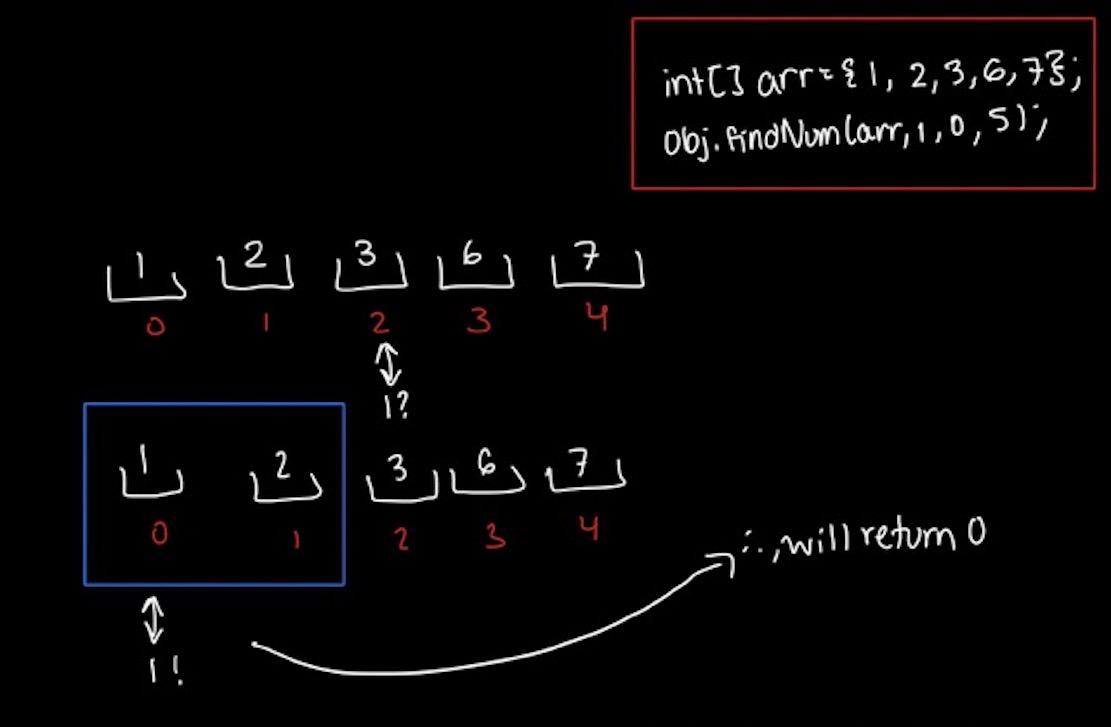 int[] arr={1, 2,3,6,7};
Obj.findNum(arr,1,0,5);
1 2 3 6 7
0 1 2 3 4
1?
1 2 3 6 7
0 1 2 3 4
∴, will return 0
1!